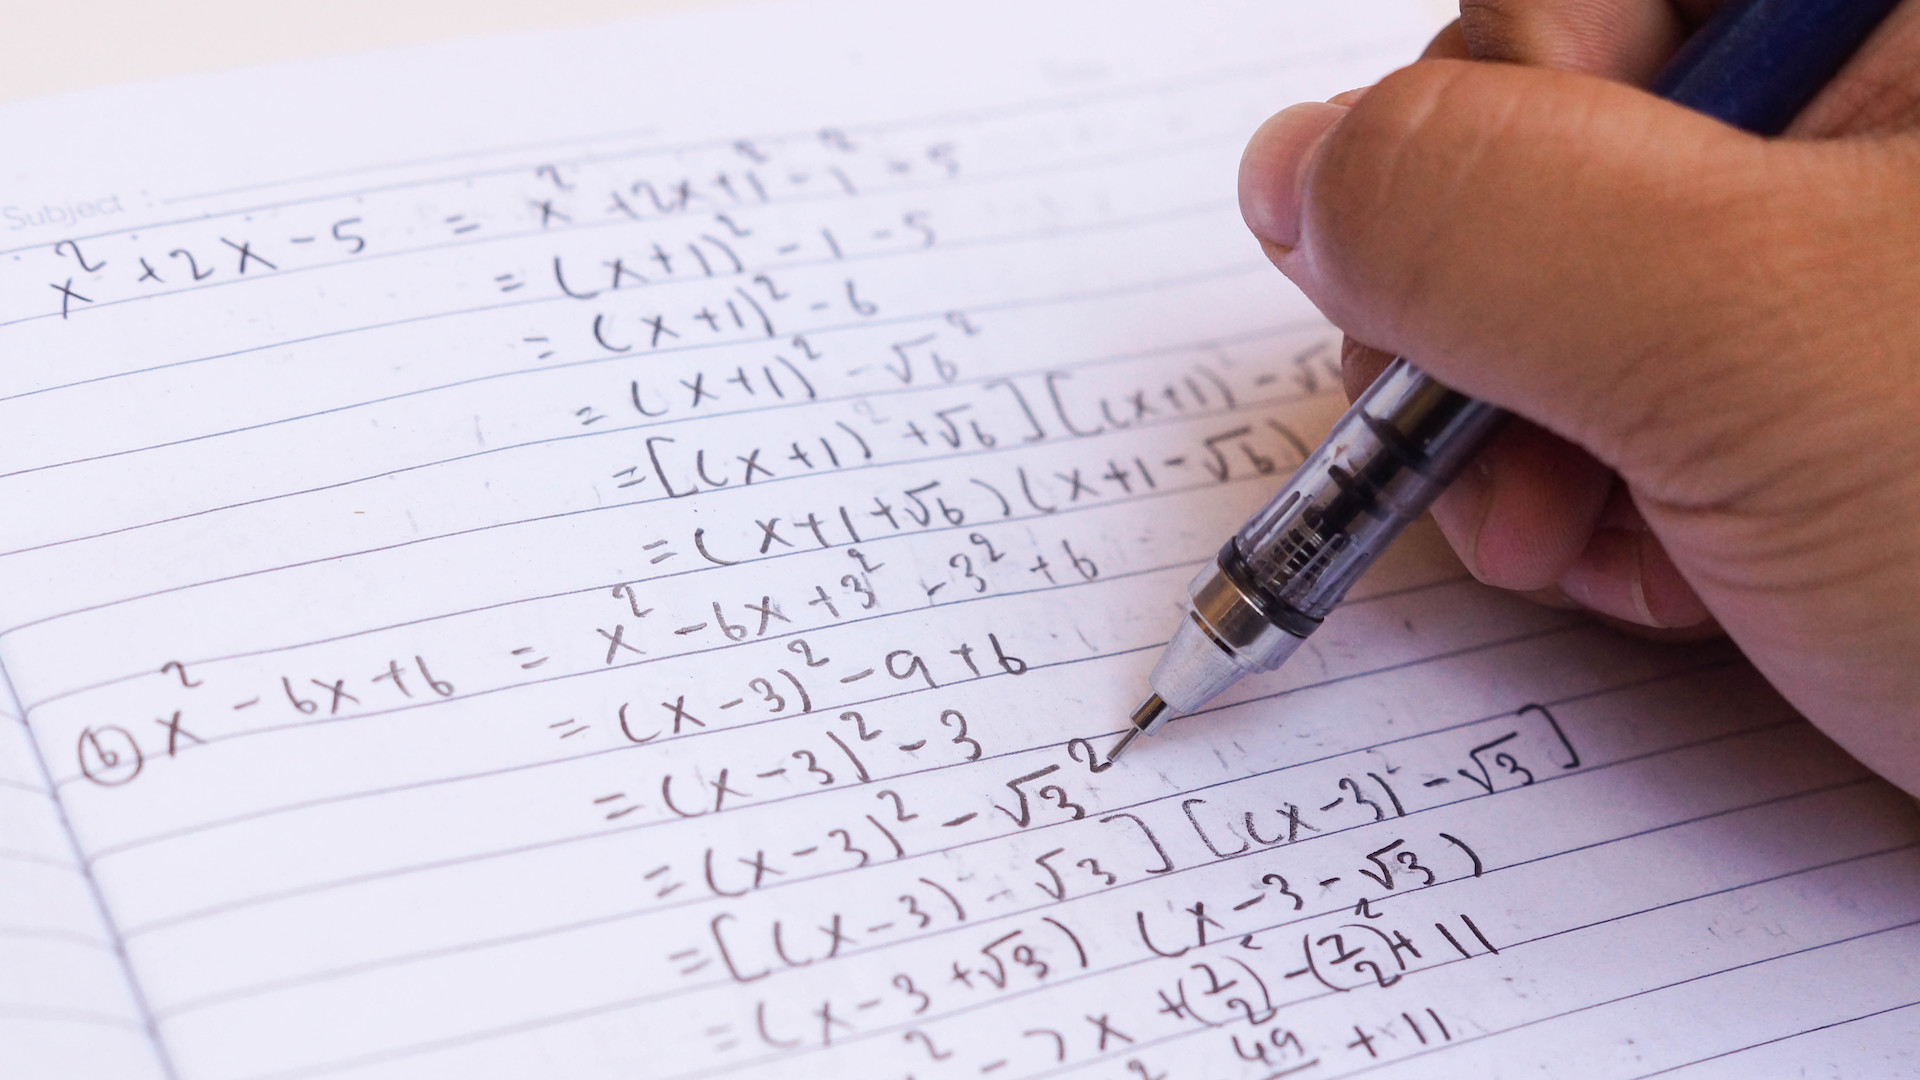 Subject :
x² + 2x - 5 = x² + 2x + 1² - 1² - 5
= (x+1)² - 1 - 5
= (x+1)² - 6
= (x+1)² - √6²
= [(x+1)² + √6] [(x+1)² - √6
= (x+1+√6) (x+1-√6)
ⓑ x² - 6x + 6 = x² - 6x + 3² - 3² + 6
= (x-3)² - 9 + 6
= (x-3)² - 3
= (x-3)² - √3²
= [(x-3) - √3] [(x-3) - √3]
= (x-3+√3) (x-3-√3)
² - 7x + (7/2)² - (7/2)² + 11
² 49 + 11